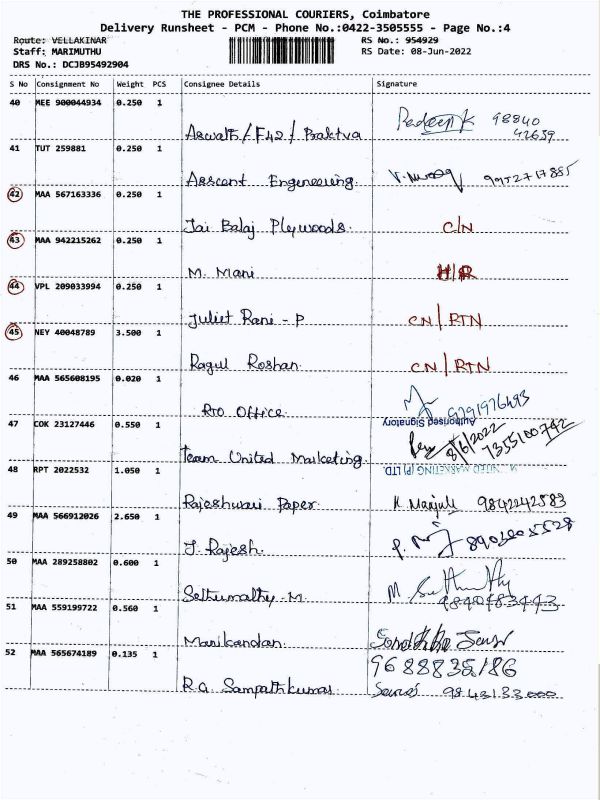 THE PROFESSIONAL COURIERS, Coimbatore
Delivery Runsheet - PCM - Phone No.:0422-3505555 - Page No.:4
Route: VELLAKINAR RS No.: 954929
Staff: MARIMUTHU RS Date: 08-Jun-2022
DRS No.: DCJB95492904
S No Consignment No Weight PCS Consignee Details Signature
40 MEE 900044934 0.250 1
Aswath/F42/Baktva Pradeep K 98840
42659
41 TUT 259881 0.250 1
Asscent Engineering. 9952717885
42 MAA 567163336 0.250 1
Jai Balaj Plywoods. C/N
43 MAA 942215262 0.250 1
M. Mani
44 VPL 209033994 0.250 1
Juliet Rani - P CN/RTN
45 NEY 40048789 3.500 1
Ragul Roshan. CN/RTN
46 MAA 565608195 0.020 1
RTO Office. 9791976493
Authorised Signatory
47 COK 23127446 0.550 1
8/6/2022
7355100742
Team United Marketing.
UNITED MARKETING (P) LTD
48 RPT 2022532 1.050 1
Rajeshwari Paper K Manjula 9842242583
49 MAA 566912026 2.650 1
J. Rajesh. 8903805528
50 MAA 289258802 0.600 1
Sethumathy - M. M. Sethumathy
9840483443
51 MAA 559199722 0.560 1
Manikandan.
52 MAA 565674189 0.135 1 9688835186
R.G. Sampathkumar. 9843133000